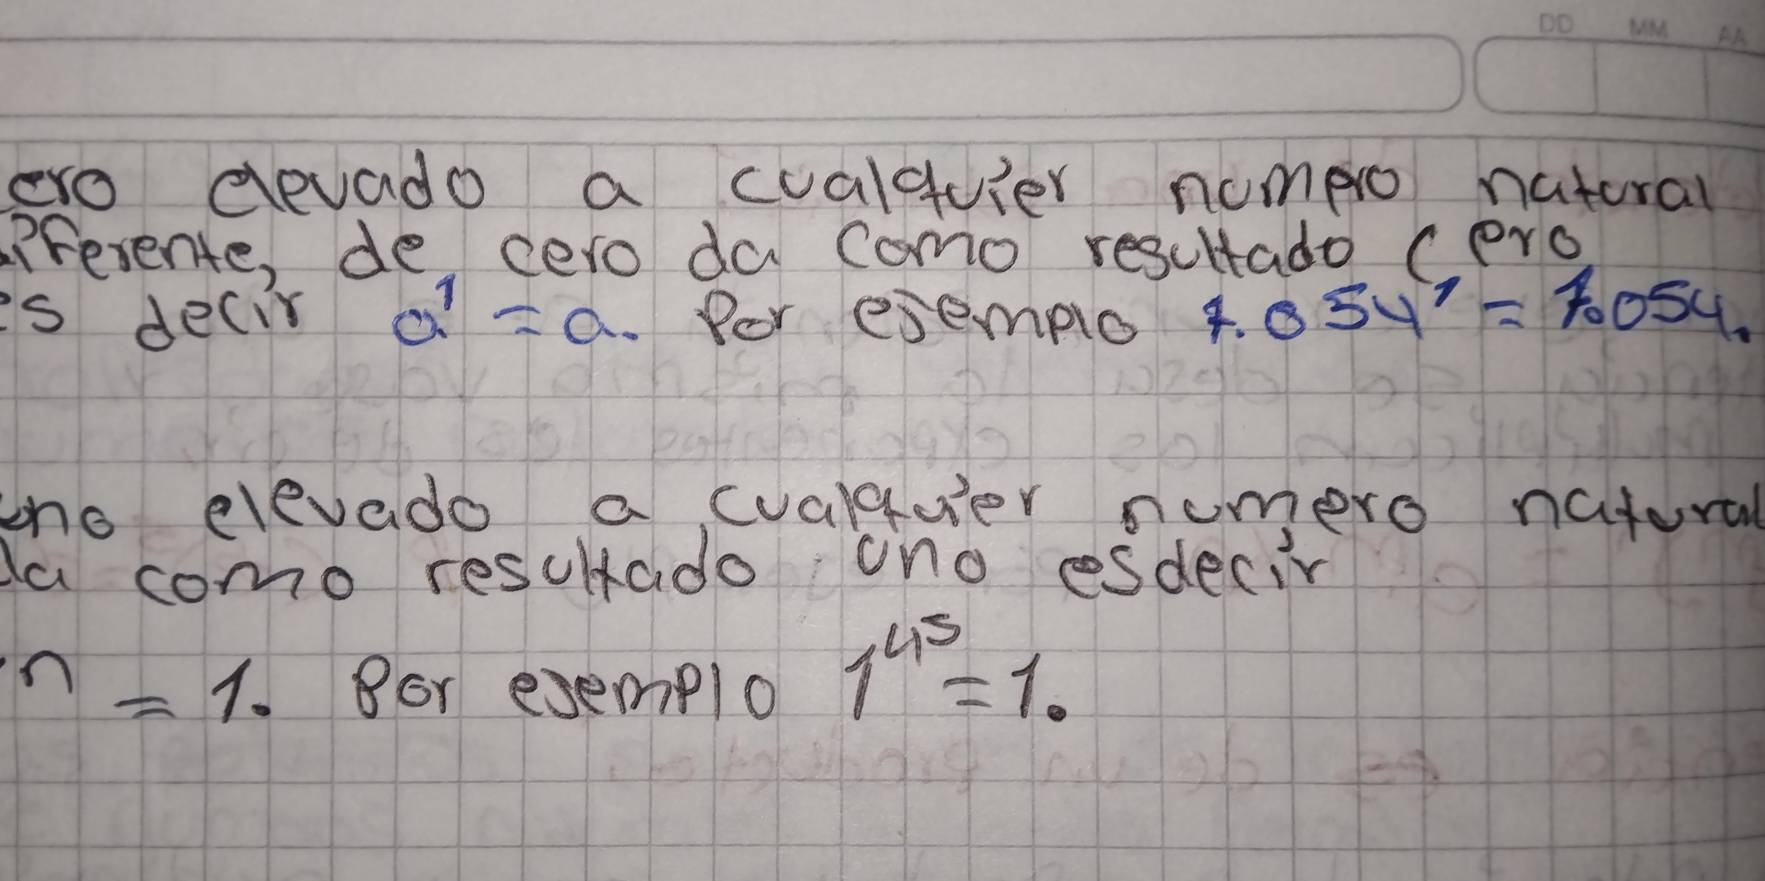 DD MM AA
ero elevado a cualquier numero natural
iferente, de cero da como resultado cero
es decir a¹ = a. Por ejemplo 1.054¹ = 1.054.
uno elevado a cualquier numero natural
da como resultado uno esdecir
n = 1. Por ejemplo 1⁴⁵ = 1.